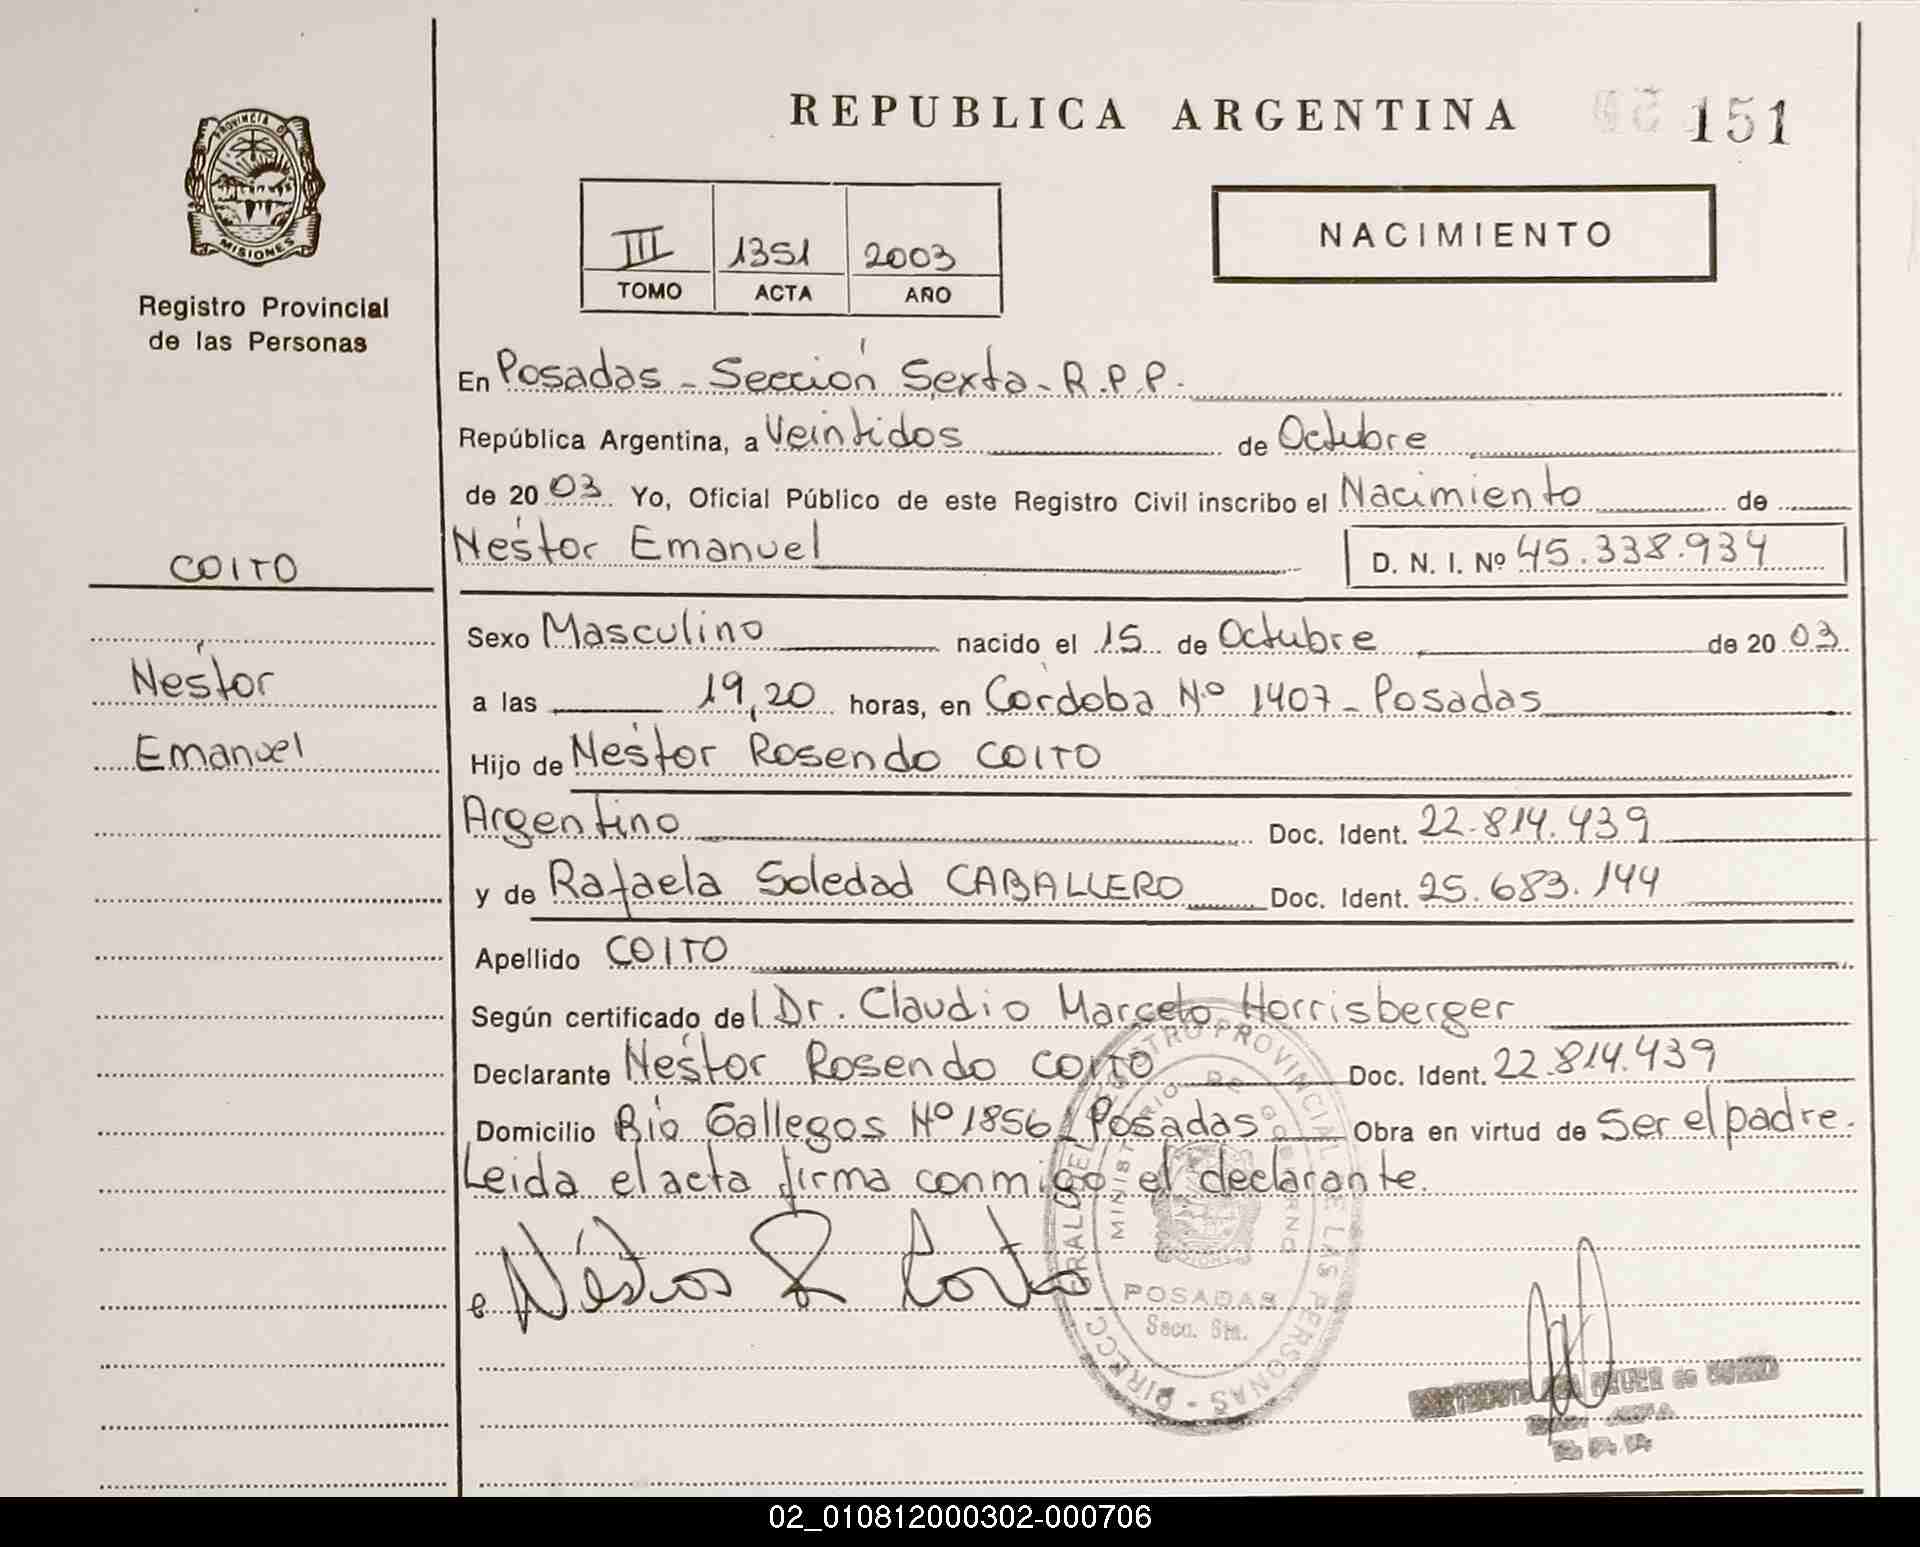 REPUBLICA ARGENTINA
151
PROVINCIA D
MISIONES
Registro Provincial
de las Personas
III 1351 2003
TOMO ACTA AÑO
NACIMIENTO
En Posadas - Sección Sexta - R.P.P.
República Argentina, a Veintidos de Octubre
de 20 03 Yo, Oficial Público de este Registro Civil inscribo el Nacimiento de
Néstor Emanuel D. N. I. Nº 45.338.934
COITO
Néstor
Emanuel
Sexo Masculino nacido el 15 de Octubre de 20 03
a las 19,20 horas, en Córdoba Nº 1407 - Posadas
Hijo de Néstor Rosendo COITO
Argentino Doc. Ident. 22.814.439
y de Rafaela Soledad CABALLERO Doc. Ident. 25.683.144
Apellido COITO
Según certificado del Dr. Claudio Marcelo Horrisberger
Declarante Néstor Rosendo COITO Doc. Ident. 22.814.439
Domicilio Río Gallegos Nº 1856 - Posadas Obra en virtud de Ser el padre.
Leida el acta firma conmigo el declarante.
Néstor R Coito
MINISTERIO DE GOBIERNO
POSADAS
Secc. 6ta.
02_010812000302-000706